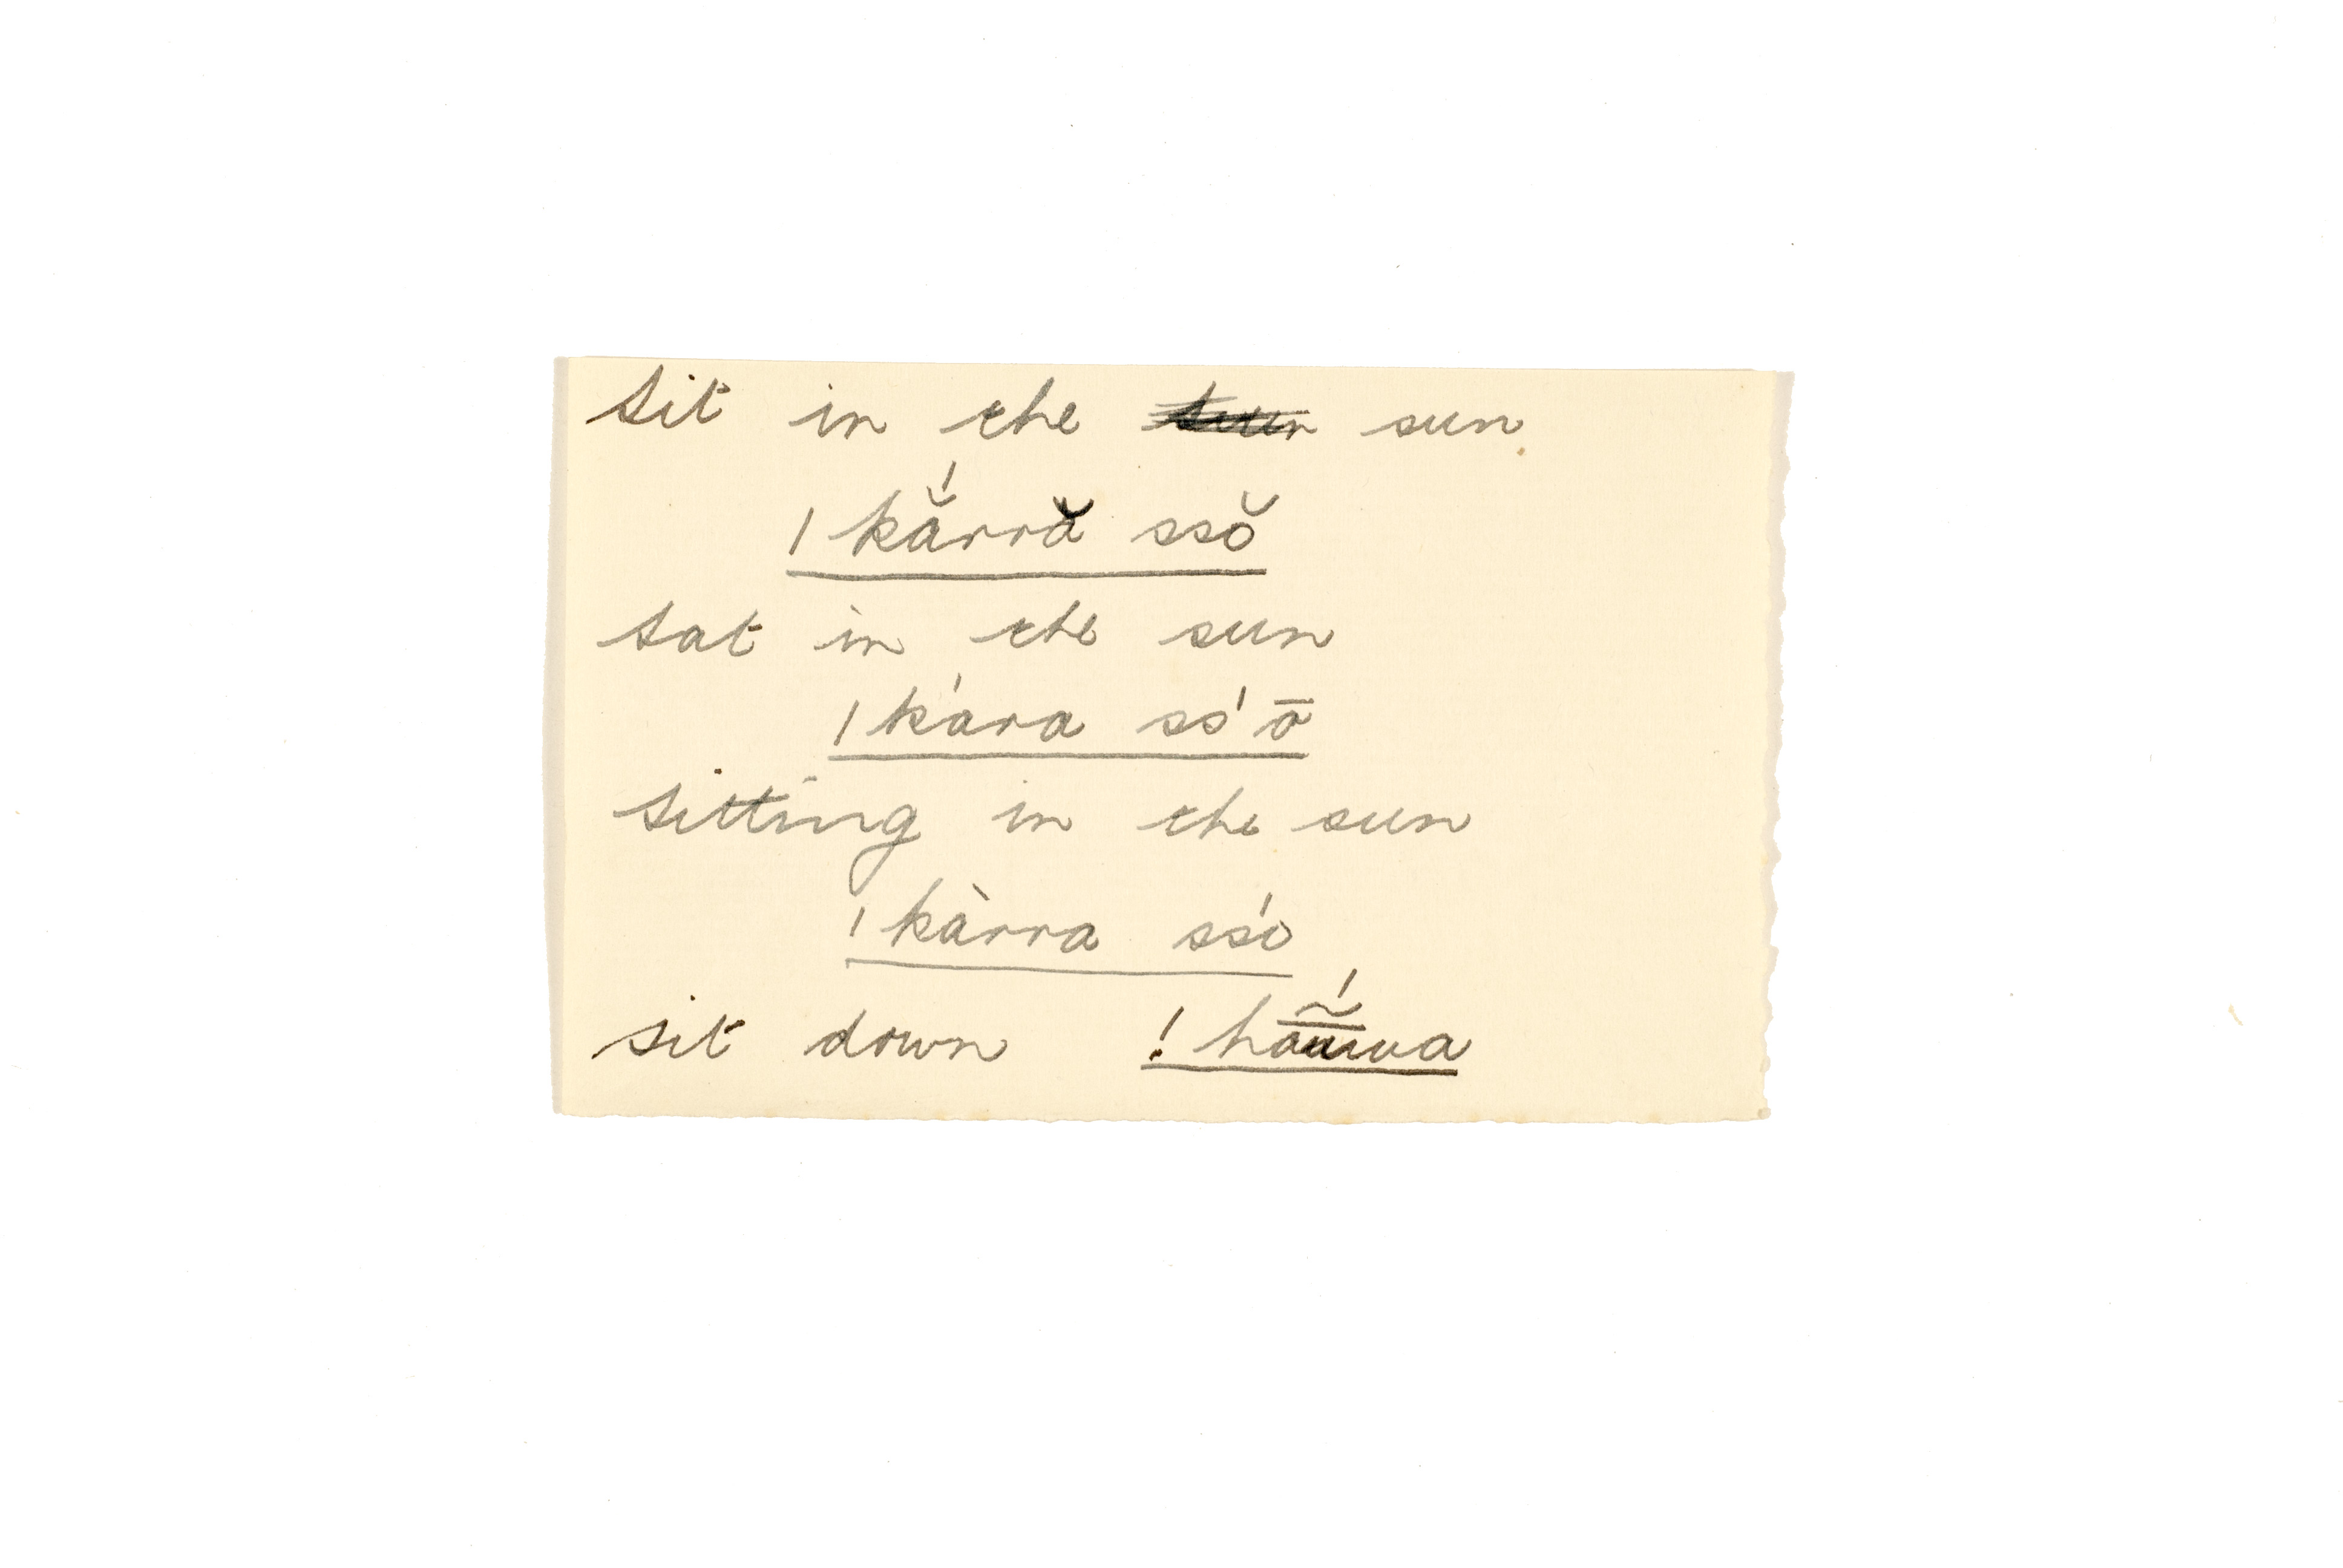 sit in the sun
ǀkắrră ssŏ
sat in the sun
ǀkára ss'ō
sitting in the sun
ǀkàrra sśo
sit down